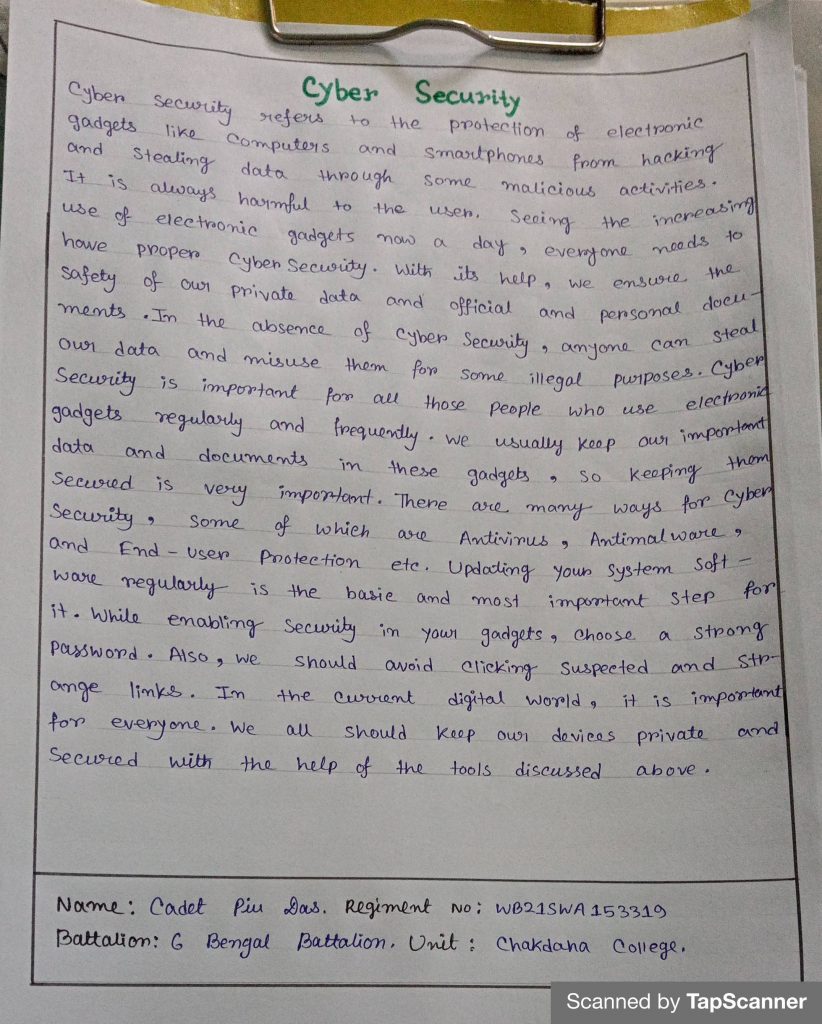 Cyber Security
Cyber Security refers to the protection of electronic
gadgets like Computers and smartphones from hacking
and stealing data through some malicious activities.
It is always harmful to the user. Seeing the increasing
use of electronic gadgets now a day, everyone needs to
have proper Cyber Security. With its help, we ensure the
safety of our private data and official and personal docu-
ments. In the absence of Cyber Security, anyone can steal
our data and misuse them for some illegal purposes. Cyber
Security is important for all those people who use electronic
gadgets regularly and frequently. We usually keep our important
data and documents in these gadgets, so keeping them
secured is very important. There are many ways for Cyber
Security, some of which are Antivirus, Antimalware,
and End-user Protection etc. Updating your system soft-
ware regularly is the basic and most important step for
it. While enabling Security in your gadgets, choose a strong
password. Also, we should avoid clicking suspected and str-
ange links. In the current digital world, it is important
for everyone. We all should keep our devices private and
secured with the help of the tools discussed above.
Name: Cadet Piu Das. Regiment No: WB21SWA153319
Battalion: 6 Bengal Battalion. Unit: Chakdaha College.
Scanned by TapScanner